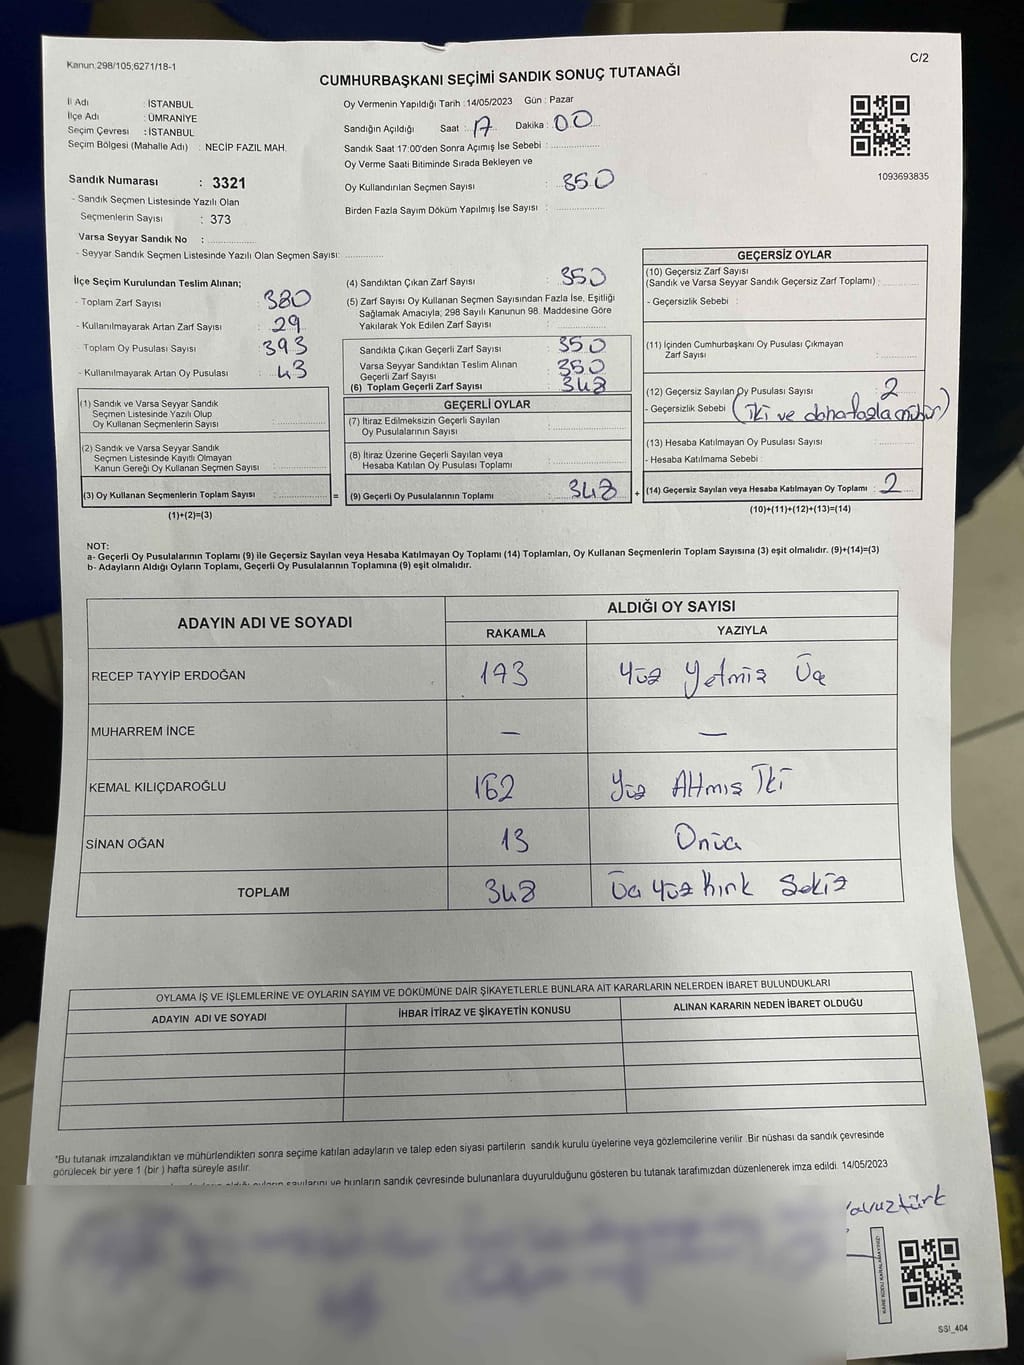 Kanun:298/105,6271/18-1
C/2
CUMHURBAŞKANI SEÇİMİ SANDIK SONUÇ TUTANAĞI
İl Adı : İSTANBUL
İlçe Adı : ÜMRANİYE
Seçim Çevresi : İSTANBUL
Seçim Bölgesi (Mahalle Adı) : NECİP FAZIL MAH.
Sandık Numarası : 3321
- Sandık Seçmen Listesinde Yazılı Olan
Seçmenlerin Sayısı : 373
Varsa Seyyar Sandık No :
- Seyyar Sandık Seçmen Listesinde Yazılı Olan Seçmen Sayısı:
Oy Vermenin Yapıldığı Tarih :14/05/2023 Gün : Pazar
Sandığın Açıldığı Saat : 17 Dakika : 00
Sandık Saat 17:00'den Sonra Açımış İse Sebebi :
Oy Verme Saati Bitiminde Sırada Bekleyen ve
Oy Kullandırılan Seçmen Sayısı : 350
Birden Fazla Sayım Döküm Yapılmış İse Sayısı :
1093693835
İlçe Seçim Kurulundan Teslim Alınan;
- Toplam Zarf Sayısı : 380
- Kullanılmayarak Artan Zarf Sayısı : 29
- Toplam Oy Pusulası Sayısı : 393
- Kullanılmayarak Artan Oy Pusulası : 43
(1) Sandık ve Varsa Seyyar Sandık
Seçmen Listesinde Yazılı Olup
Oy Kullanan Seçmenlerin Sayısı :
(2) Sandık ve Varsa Seyyar Sandık
Seçmen Listesinde Kayıtlı Olmayan
Kanun Gereği Oy Kullanan Seçmen Sayısı :
(3) Oy Kullanan Seçmenlerin Toplam Sayısı :
(1)+(2)=(3)
(4) Sandıktan Çıkan Zarf Sayısı : 350
(5) Zarf Sayısı Oy Kullanan Seçmen Sayısından Fazla İse, Eşitliği
Sağlamak Amacıyla; 298 Sayılı Kanunun 98. Maddesine Göre
Yakılarak Yok Edilen Zarf Sayısı :
Sandıkta Çıkan Geçerli Zarf Sayısı : 350
Varsa Seyyar Sandıktan Teslim Alınan
Geçerli Zarf Sayısı : 350
(6) Toplam Geçerli Zarf Sayısı : 348
GEÇERLİ OYLAR
(7) İtiraz Edilmeksizin Geçerli Sayılan
Oy Pusulalarının Sayısı :
(8) İtiraz Üzerine Geçerli Sayılan veya
Hesaba Katılan Oy Pusulası Toplamı :
= (9) Geçerli Oy Pusulalarının Toplamı : 348 +
GEÇERSİZ OYLAR
(10) Geçersiz Zarf Sayısı
(Sandık ve Varsa Seyyar Sandık Geçersiz Zarf Toplamı) :
- Geçersizlik Sebebi :
(11) İçinden Cumhurbaşkanı Oy Pusulası Çıkmayan
Zarf Sayısı :
(12) Geçersiz Sayılan Oy Pusulası Sayısı : 2
- Geçersizlik Sebebi (iki ve daha fazla mühür)
(13) Hesaba Katılmayan Oy Pusulası Sayısı :
- Hesaba Katılmama Sebebi :
(14) Geçersiz Sayılan veya Hesaba Katılmayan Oy Toplamı : 2
(10)+(11)+(12)+(13)=(14)
NOT:
a- Geçerli Oy Pusulalarının Toplamı (9) ile Geçersiz Sayılan veya Hesaba Katılmayan Oy Toplamı (14) Toplamları, Oy Kullanan Seçmenlerin Toplam Sayısına (3) eşit olmalıdır. (9)+(14)=(3)
b- Adayların Aldığı Oyların Toplamı, Geçerli Oy Pusulalarının Toplamına (9) eşit olmalıdır.
ADAYIN ADI VE SOYADI
ALDIĞI OY SAYISI
RAKAMLA YAZIYLA
RECEP TAYYİP ERDOĞAN 173 Yüz Yetmiş Üç
MUHARREM İNCE — —
KEMAL KILIÇDAROĞLU 162 Yüz Altmış İki
SİNAN OĞAN 13 Onüç
TOPLAM 348 Üç Yüz Kırk Sekiz
OYLAMA İŞ VE İŞLEMLERİNE VE OYLARIN SAYIM VE DÖKÜMÜNE DAİR ŞİKAYETLERLE BUNLARA AİT KARARLARIN NELERDEN İBARET BULUNDUKLARI
ADAYIN ADI VE SOYADI
İHBAR İTİRAZ VE ŞİKAYETİN KONUSU
ALINAN KARARIN NEDEN İBARET OLDUĞU
*Bu tutanak imzalandıktan ve mühürlendikten sonra seçime katılan adayların ve talep eden siyasi partilerin sandık kurulu üyelerine veya gözlemcilerine verilir. Bir nüshası da sandık çevresinde
görülecek bir yere 1 (bir ) hafta süreyle asılır.
sayılarını ve bunların sandık çevresinde bulunanlara duyurulduğunu gösteren bu tutanak tarafımızdan düzenlenerek imza edildi. 14/05/2023
Yavuztürk
KARE KODU KARALAMAYINIZ!
SSİ_404